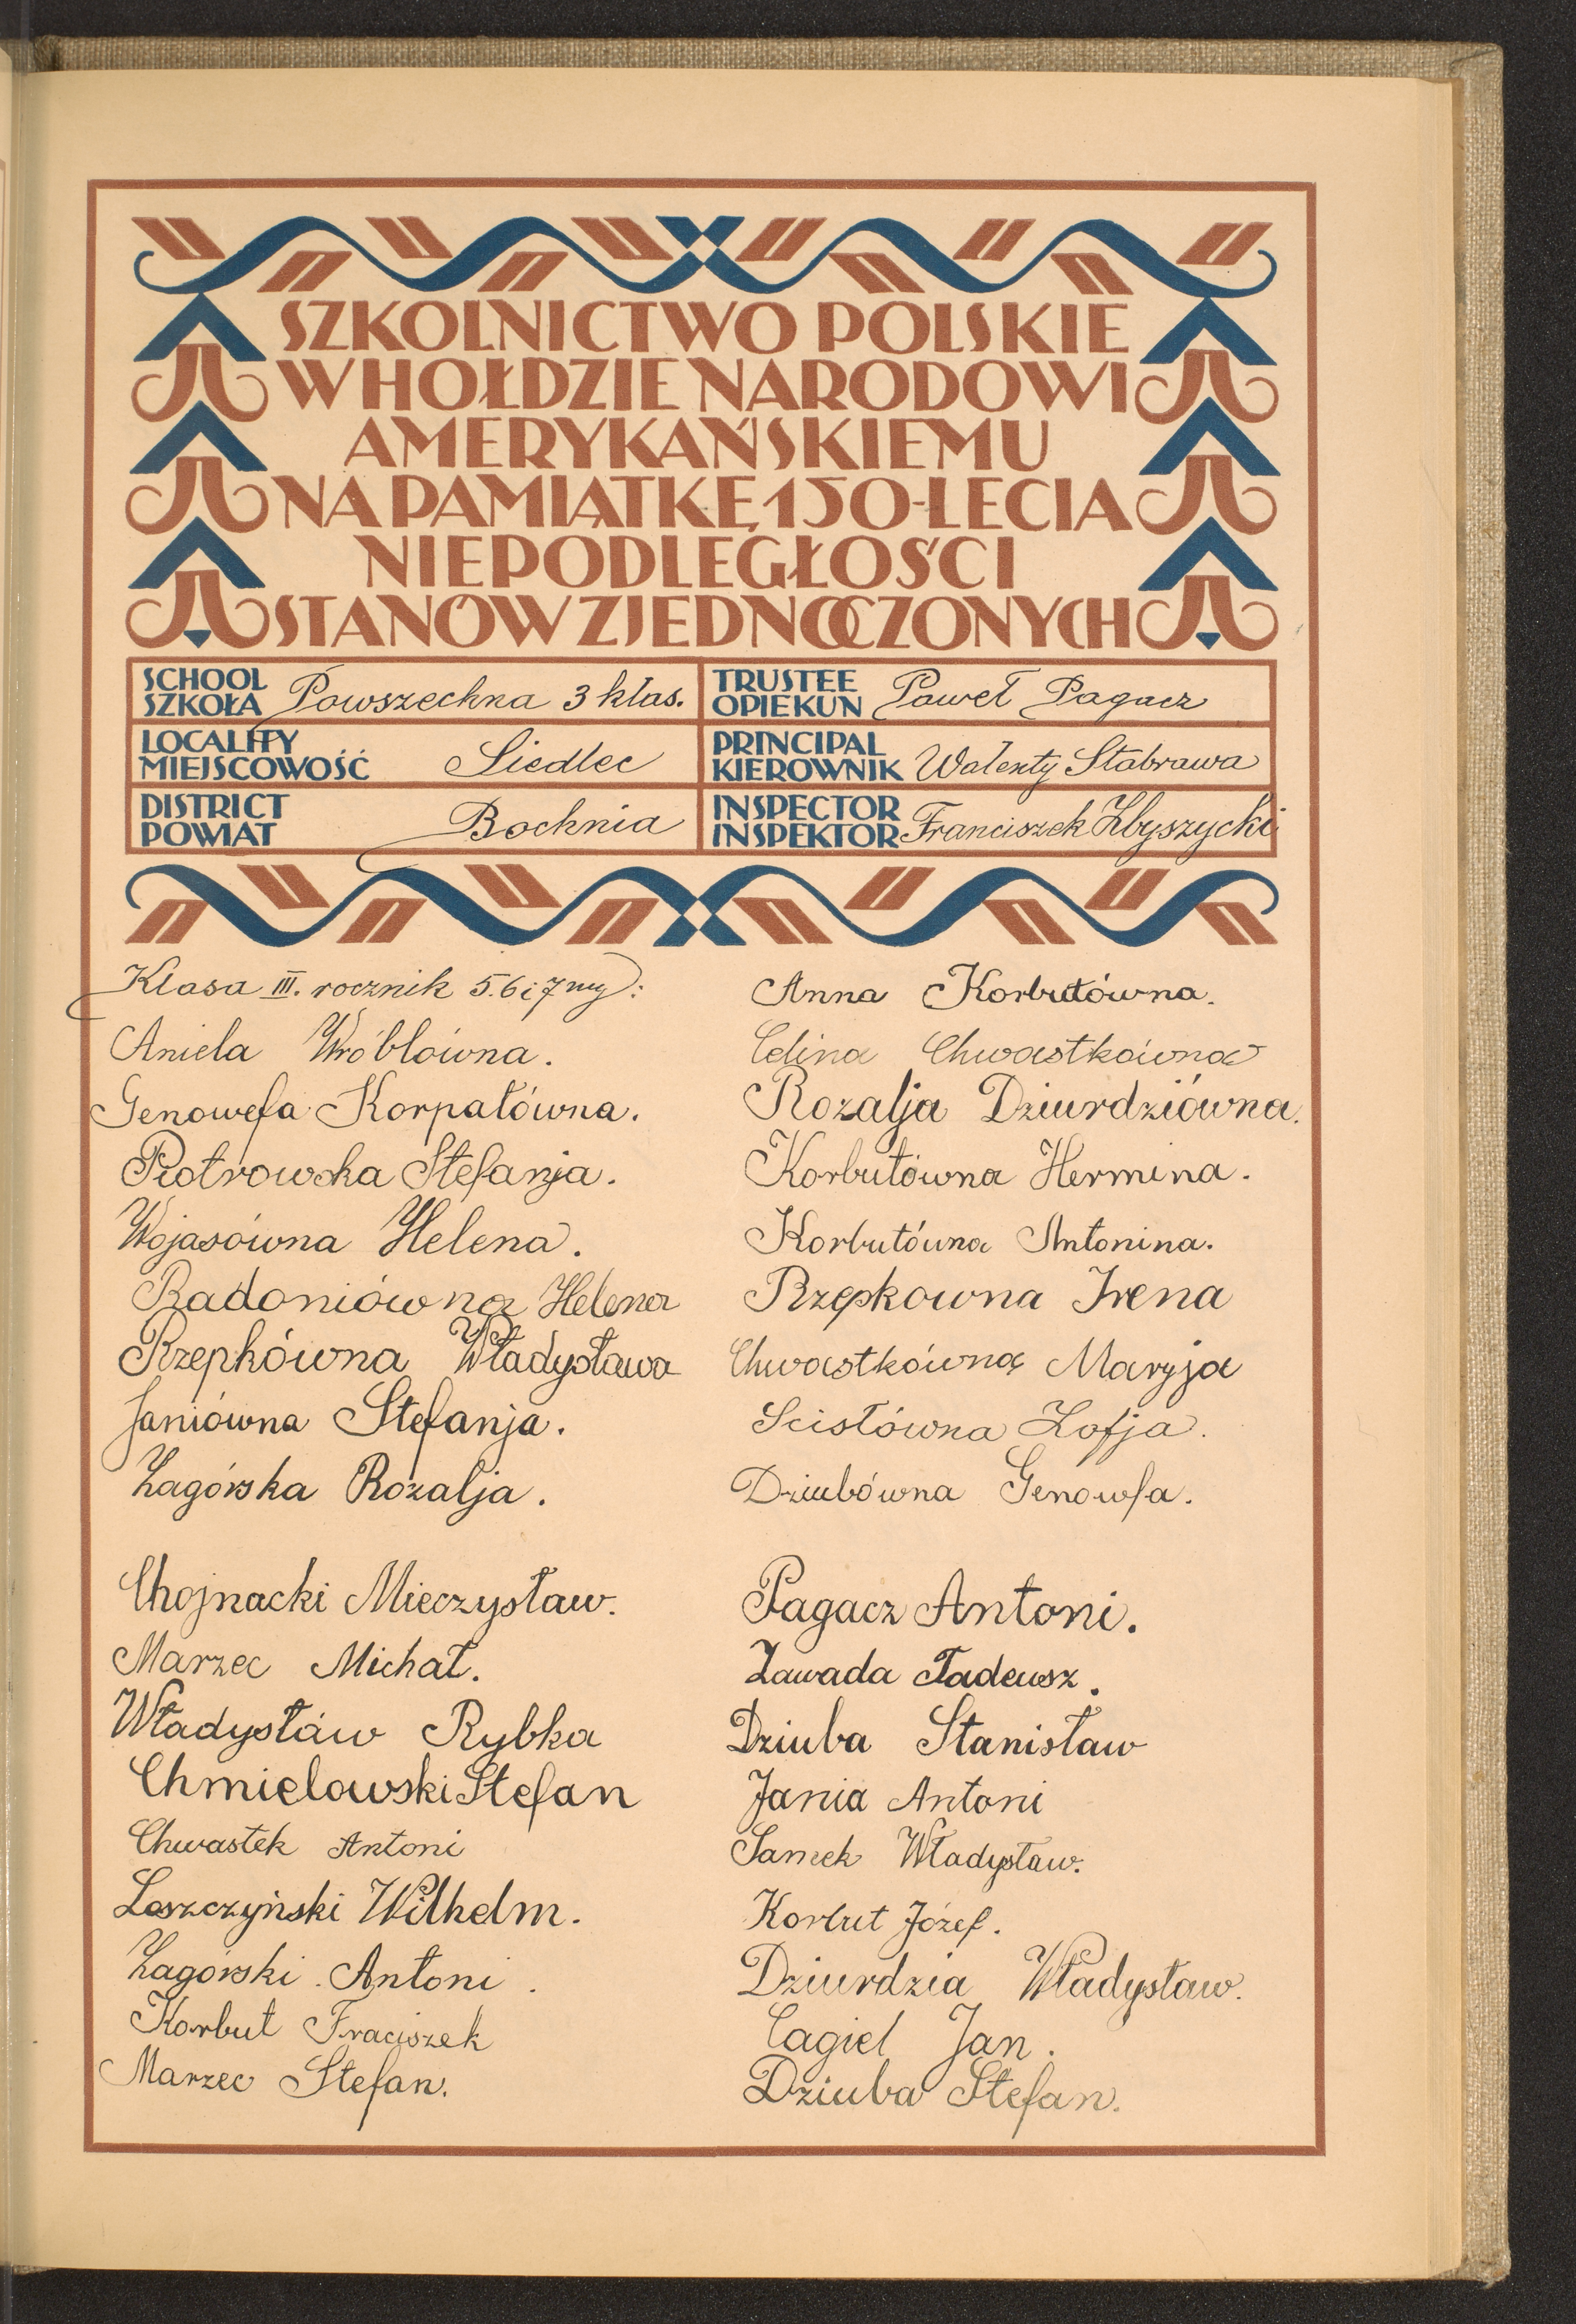 SZKOLNICTWO POLSKIE
W HOŁDZIE NARODOWI
AMERYKAŃSKIEMU
NA PAMIĄTKĘ 150-LECIA
NIEPODLEGŁOŚCI
STANÓW ZJEDNOCZONYCH
SCHOOL
SZKOŁA Powszechna 3 klas.
TRUSTEE
OPIEKUN Paweł Pagacz
LOCALITY
MIEJSCOWOŚĆ Siedlec
PRINCIPAL
KIEROWNIK Walenty Stabrawa
DISTRICT
POWIAT Bochnia
INSPECTOR
INSPEKTOR Franciszek Zbyszycki
Klasa III. rocznik 5. 6 i 7 my):
Aniela Wróblówna.
Genowefa Korpałówna.
Piotrowska Stefanja.
Wojasówna Helena.
Radoniówna Helena
Rzepkówna Władysława
Janiówna Stefanja.
Zagórska Rozalja.
Chojnacki Mieczysław.
Marzec Michał.
Władysław Rybka
Chmielowski Stefan
Chwastek Antoni
Leszczyński Wilhelm.
Zagórski Antoni.
Korbut Fraciszek
Marzec Stefan.
Anna Korbutówna.
Celina Chwastkówna
Rozalja Dziurdziówna.
Korbutówna Hermina.
Korbutówna Antonina.
Rzepkowna Irena
Chwastkówna Maryja
Scisłówna Zofja.
Dziubówna Genowfa.
Pagacz Antoni.
Zawada Tadeusz.
Dziuba Stanisław
Jania Antoni
Samek Władysław.
Korbut Józef.
Dziurdzia Władysław.
Cagiel Jan.
Dziuba Stefan.